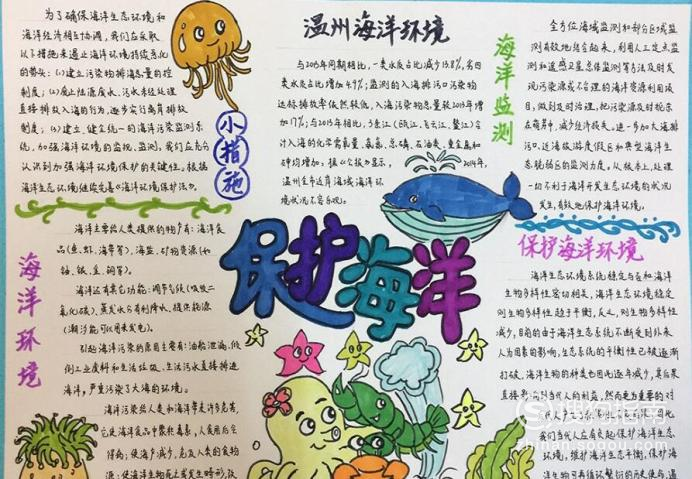 为了确保海洋生态环境和
海洋经济相互协调,我们应采取
以下措施来遏止海洋环境持续恶化
的势头:(1)建立污染物排海总量的控
制度;(2)废止陆源废水、污水未经处理
直接排放入海的行为,逐步实行离岸排放
制度;(3)建立、健全统一的海洋污染监测系
统,加强海洋环境的监视、监测,我们应充分
认识到加强海洋环境保护的关键性。根据
海洋生态环境继续完善《海洋环境保护法》。
小措施
温州海洋环境
与2015年同期相比,一类水质占比减少15.8%,劣四
类水质占比增加4.9%;监测的入海排污口污染物
达标排放率依然较低,入海污染物总量较2013年增
加17%;与2015年相比,3条江(瓯江、飞云江、鳌江)合
计入海的化学需氧量、氨氮、总磷、石油类、重金属和
砷均增加。据《公报》显示,2014年,
温州全市近岸海域海洋环
境状况不容乐观。
海洋监测
全方位海域监测和部分区域监
测有效地结合起来,利用人工定点监
测和遥感卫星总体监测等方法及时发
现污染源或不合理的海洋资源利用项
目,做到及时治理,把污染源及时扼杀
在萌芽中,减少经济损失。进一步加大海排
污口、近海旅游度假区和典型海洋生
态脆弱区的监测力度。从根本上,处理
一切不利于海洋开发生态环境的状况
发生,有效地保护海洋环境。
保护海洋
海洋环境
海洋主要给人类提供的物产有:海洋食
品(鱼、虾、海带等),海盐,矿物资源(如
铀、银、金、铜等)。
海洋还有其它功能:调节气候(吸收二
氧化碳)、蒸发水分有利降水,提供能源
(潮汐能可以用来发电)。
引起海洋污染的原因主要有:油船泄漏、倾
倒工业废料和生活垃圾、生活污水直接排进
海洋,严重污染了大海的环境。
海洋污染给人类和海洋带来许多危害,
它使海洋食品中聚积毒素,人食用后会
得病;使海产减少,危及人类的食物
源;使海洋生物死亡或发生畸形,改
保护海洋环境
海洋生态环境系统稳定与否和海洋
生物多样性密切相关,海洋生态环境稳定
则生物多样性趋于平衡,反之,则生物多样性
减少,目前的由于海洋生态系统不断受到外来
人为因素的影响,生态系统的平衡性已被逐渐
打破,海洋生物的种类也因此逐年减少,其后果
直接影响到当代人的利益,然而更为重要的对
我们当代人应有责起保护海洋生态
环境,维护海洋生态平衡,保护海
洋生物可再循环繁衍的历史使命,遏
搜狗指南
zhinan.sogou.com